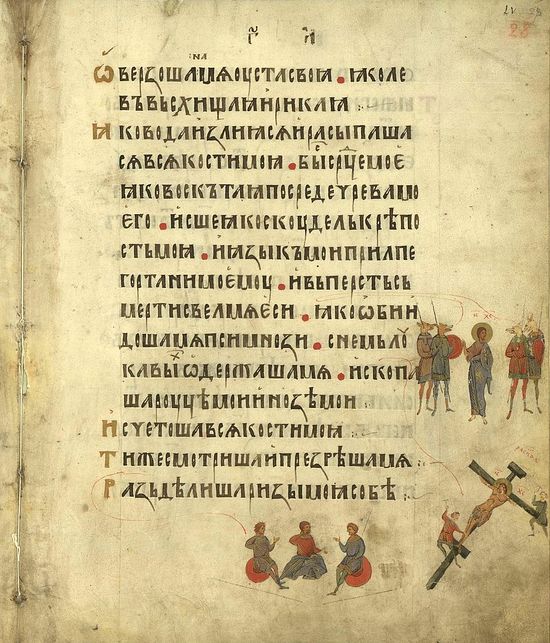 28
Ѡверзоша на мѧ оуста своꙗ • ꙗко ле
въ въсхищаꙗ и рикаꙗ :
Ꙗко вода излиꙗсѧ и расыпаша
сѧ всѧ кости моꙗ • быс срⷣце мое
ꙗко воскъ таꙗ посреде чрева мо
его • исше ꙗко скоудель крѣпо
сть моꙗ • и ꙗзыкъ мои прилпе
гортани моемоу • и въ персть съ
мерти свелъ мѧ еси • ꙗко ѡбии
доша мѧ пси мнози • снемь лоу
кавыⷯ ѡдержаша мѧ • ископа
ша роуцѣ мои и нозѣ мои
Исчетоша всѧ кости моꙗ
Ти же смотриша и презрѣша мѧ
Разъдѣлиша ризы моꙗ собѣ :